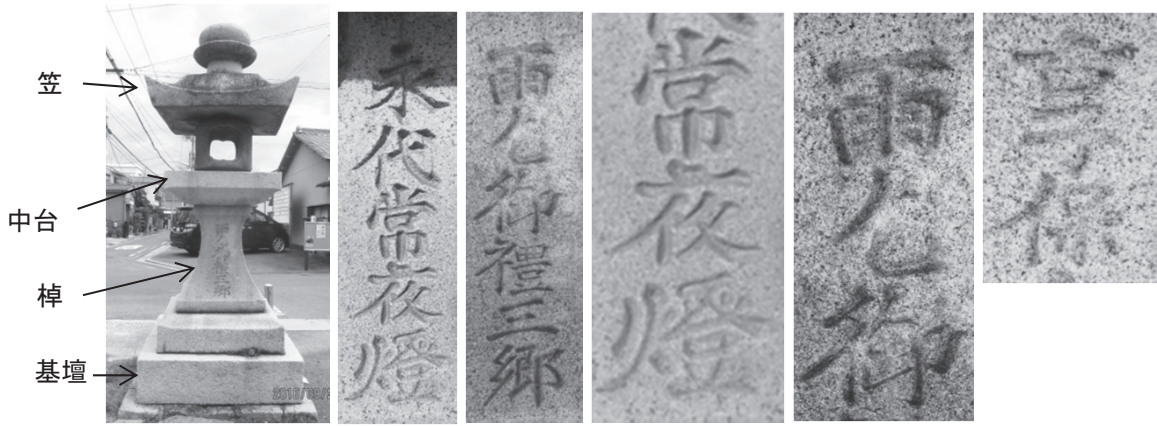 笠
中台
棹
基壇
永代常夜燈
雨乞御禮三郷
常夜燈
雨乞御